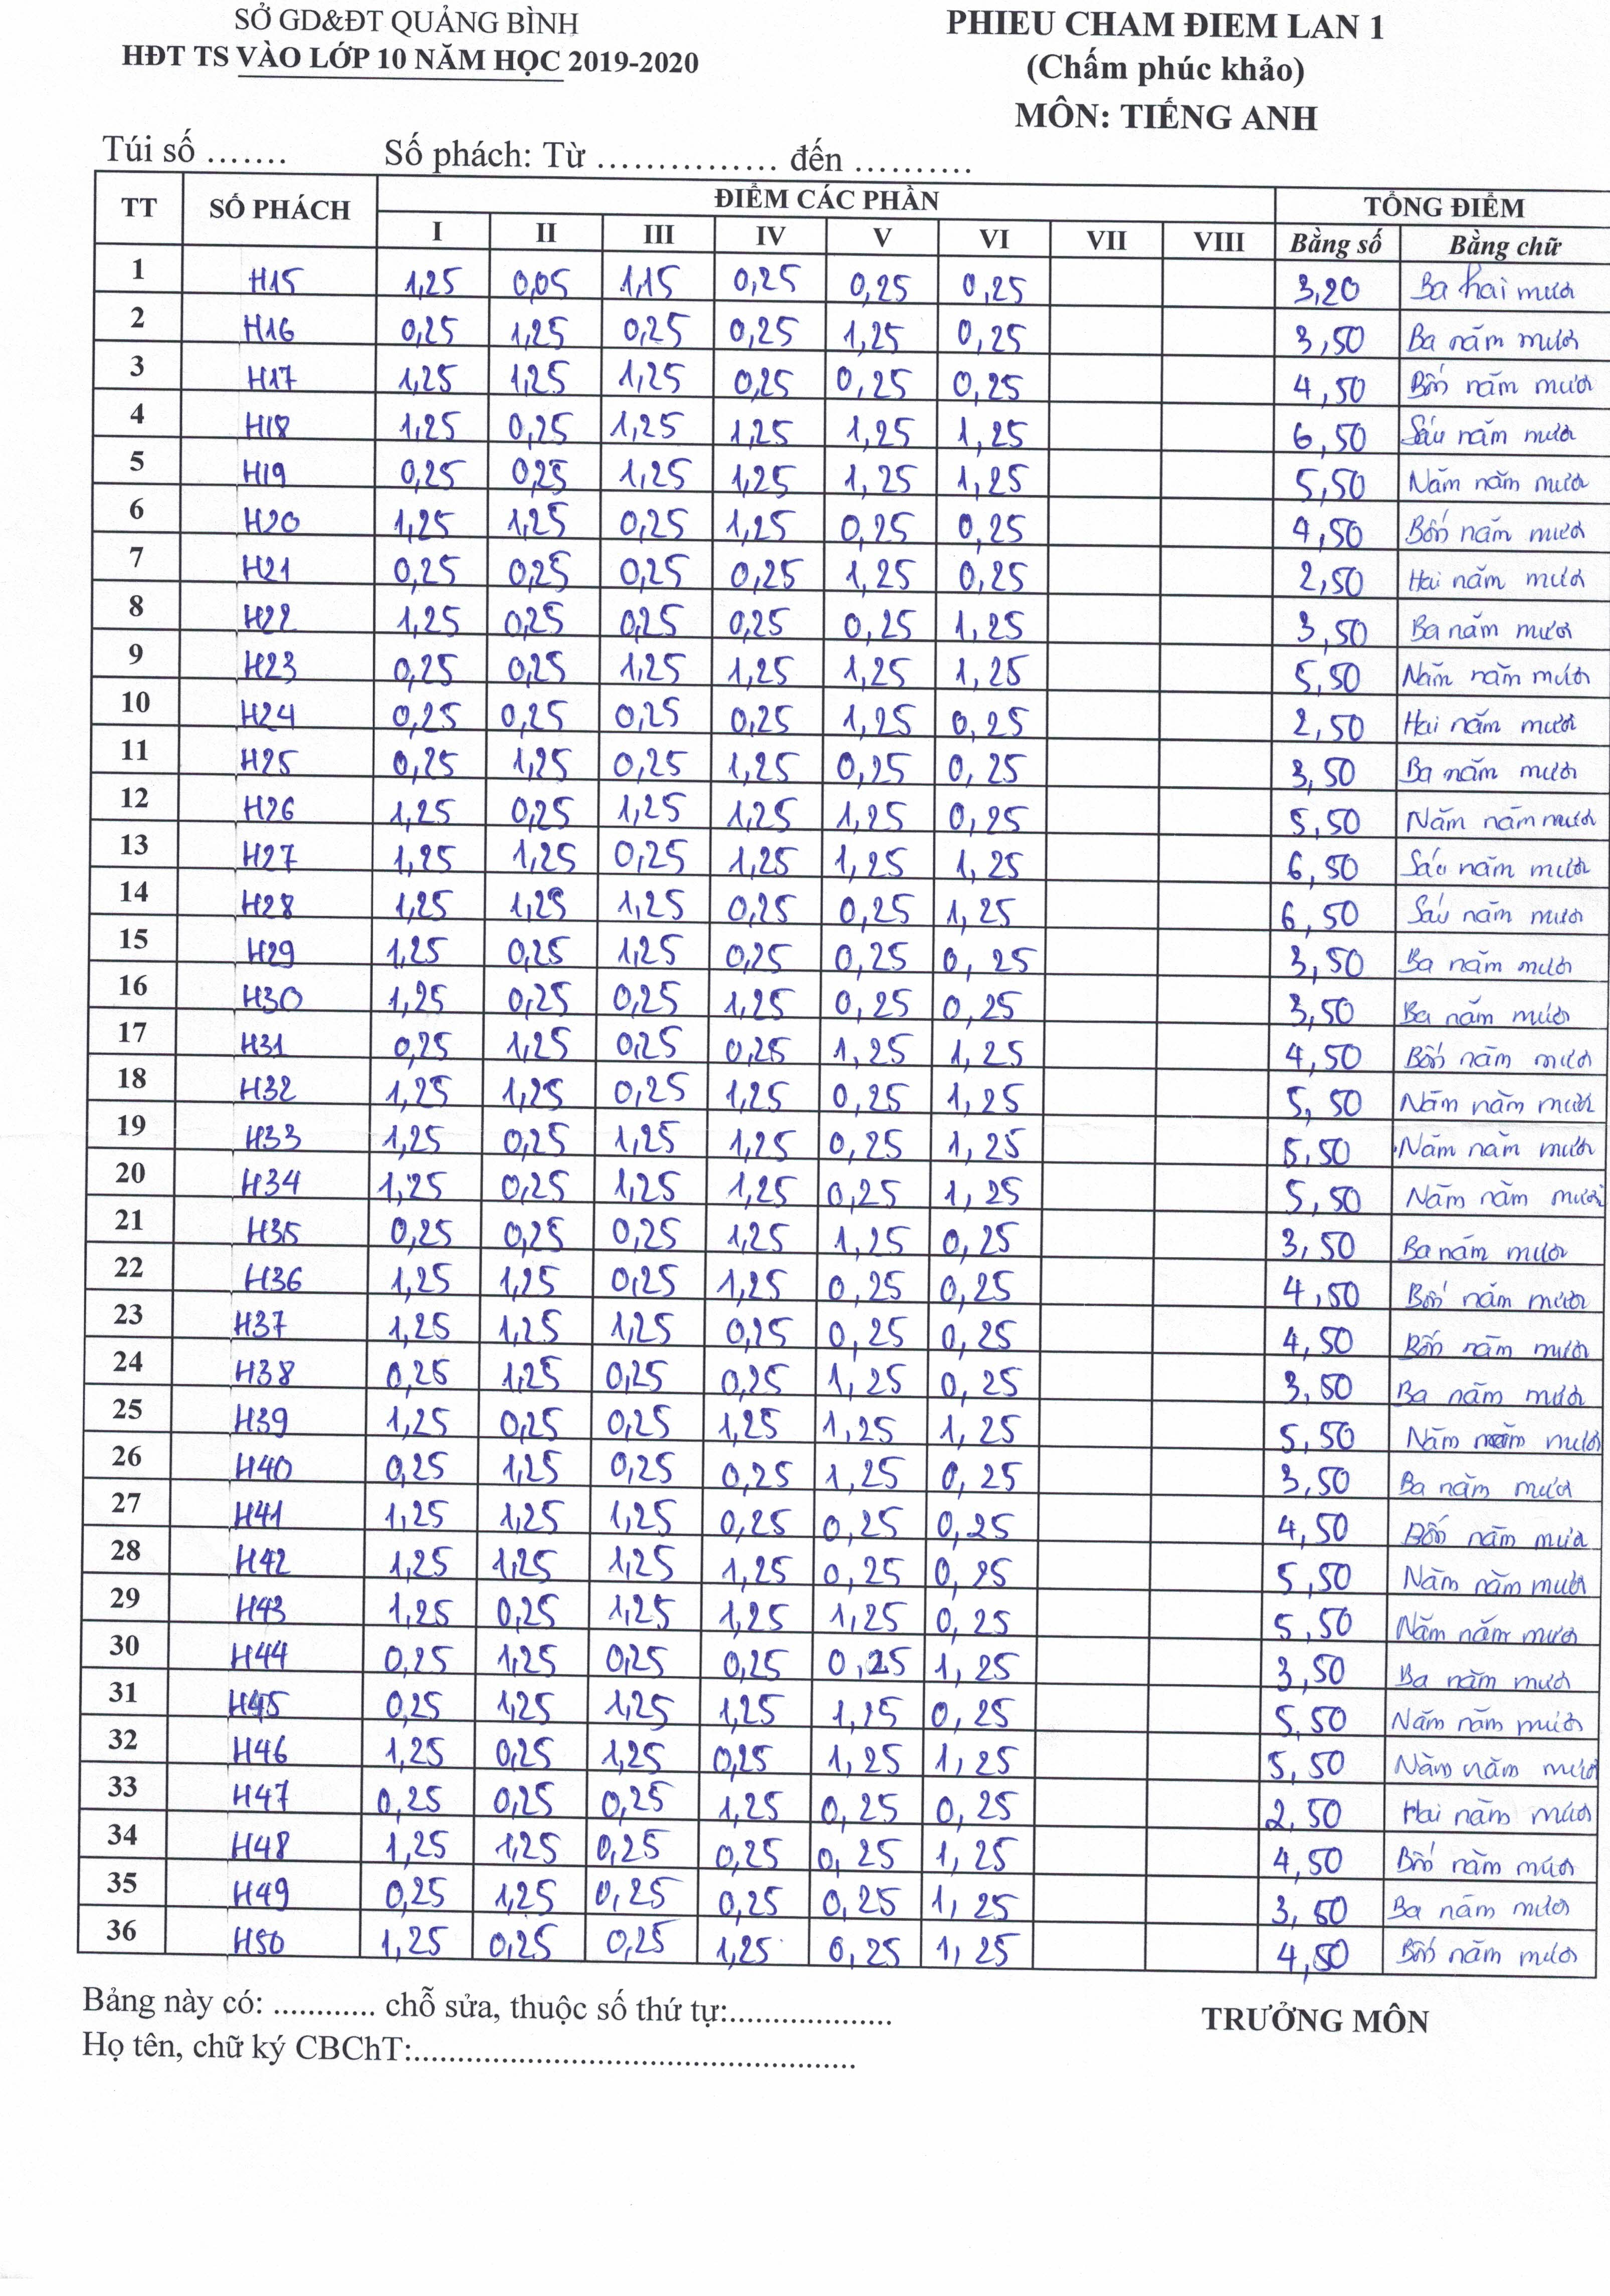 SỞ GD&ĐT QUẢNG BÌNH
HĐT TS VÀO LỚP 10 NĂM HỌC 2019-2020
PHIEU CHAM ĐIEM LAN 1
(Chấm phúc khảo)
MÔN: TIẾNG ANH
Túi số ....... Số phách: Từ ............... đến ..........
TT SỐ PHÁCH ĐIỂM CÁC PHẦN TỔNG ĐIỂM
I II III IV V VI VII VIII Bằng số Bằng chữ
1 H15 1,25 0,05 1,15 0,25 0,25 0,25 3,20 Ba hai mươi
2 H16 0,25 1,25 0,25 0,25 1,25 0,25 3,50 Ba năm mươi
3 H17 1,25 1,25 1,25 0,25 0,25 0,25 4,50 Bốn năm mươi
4 H18 1,25 0,25 1,25 1,25 1,25 1,25 6,50 Sáu năm mươi
5 H19 0,25 0,25 1,25 1,25 1,25 1,25 5,50 Năm năm mươi
6 H20 1,25 1,25 0,25 1,25 0,25 0,25 4,50 Bốn năm mươi
7 H21 0,25 0,25 0,25 0,25 1,25 0,25 2,50 Hai năm mươi
8 H22 1,25 0,25 0,25 0,25 0,25 1,25 3,50 Ba năm mươi
9 H23 0,25 0,25 1,25 1,25 1,25 1,25 5,50 Năm năm mươi
10 H24 0,25 0,25 0,25 0,25 1,25 0,25 2,50 Hai năm mươi
11 H25 0,25 1,25 0,25 1,25 0,25 0,25 3,50 Ba năm mươi
12 H26 1,25 0,25 1,25 1,25 1,25 0,25 5,50 Năm năm mươi
13 H27 1,25 1,25 0,25 1,25 1,25 1,25 6,50 Sáu năm mươi
14 H28 1,25 1,25 1,25 0,25 0,25 1,25 6,50 Sáu năm mươi
15 H29 1,25 0,25 1,25 0,25 0,25 0,25 3,50 Ba năm mươi
16 H30 1,25 0,25 0,25 1,25 0,25 0,25 3,50 Ba năm mươi
17 H31 0,25 1,25 0,25 0,25 1,25 1,25 4,50 Bốn năm mươi
18 H32 1,25 1,25 0,25 1,25 0,25 1,25 5,50 Năm năm mươi
19 H33 1,25 0,25 1,25 1,25 0,25 1,25 5,50 Năm năm mươi
20 H34 1,25 0,25 1,25 1,25 0,25 1,25 5,50 Năm năm mươi
21 H35 0,25 0,25 0,25 1,25 1,25 0,25 3,50 Ba năm mươi
22 H36 1,25 1,25 0,25 1,25 0,25 0,25 4,50 Bốn năm mươi
23 H37 1,25 1,25 1,25 0,25 0,25 0,25 4,50 Bốn năm mươi
24 H38 0,25 1,25 0,25 0,25 1,25 0,25 3,50 Ba năm mươi
25 H39 1,25 0,25 0,25 1,25 1,25 1,25 5,50 Năm năm mươi
26 H40 0,25 1,25 0,25 0,25 1,25 0,25 3,50 Ba năm mươi
27 H41 1,25 1,25 1,25 0,25 0,25 0,25 4,50 Bốn năm mươi
28 H42 1,25 1,25 1,25 1,25 0,25 0,25 5,50 Năm năm mươi
29 H43 1,25 0,25 1,25 1,25 1,25 0,25 5,50 Năm năm mươi
30 H44 0,25 1,25 0,25 0,25 0,25 1,25 3,50 Ba năm mươi
31 H45 0,25 1,25 1,25 1,25 1,25 0,25 5,50 Năm năm mươi
32 H46 1,25 0,25 1,25 0,25 1,25 1,25 5,50 Năm năm mươi
33 H47 0,25 0,25 0,25 1,25 0,25 0,25 2,50 Hai năm mươi
34 H48 1,25 1,25 0,25 0,25 0,25 1,25 4,50 Bốn năm mươi
35 H49 0,25 1,25 0,25 0,25 0,25 1,25 3,50 Ba năm mươi
36 H50 1,25 0,25 0,25 1,25 0,25 1,25 4,50 Bốn năm mươi
Bảng này có: ............ chỗ sửa, thuộc số thứ tự:....................
TRƯỞNG MÔN
Họ tên, chữ ký CBChT:......................................................